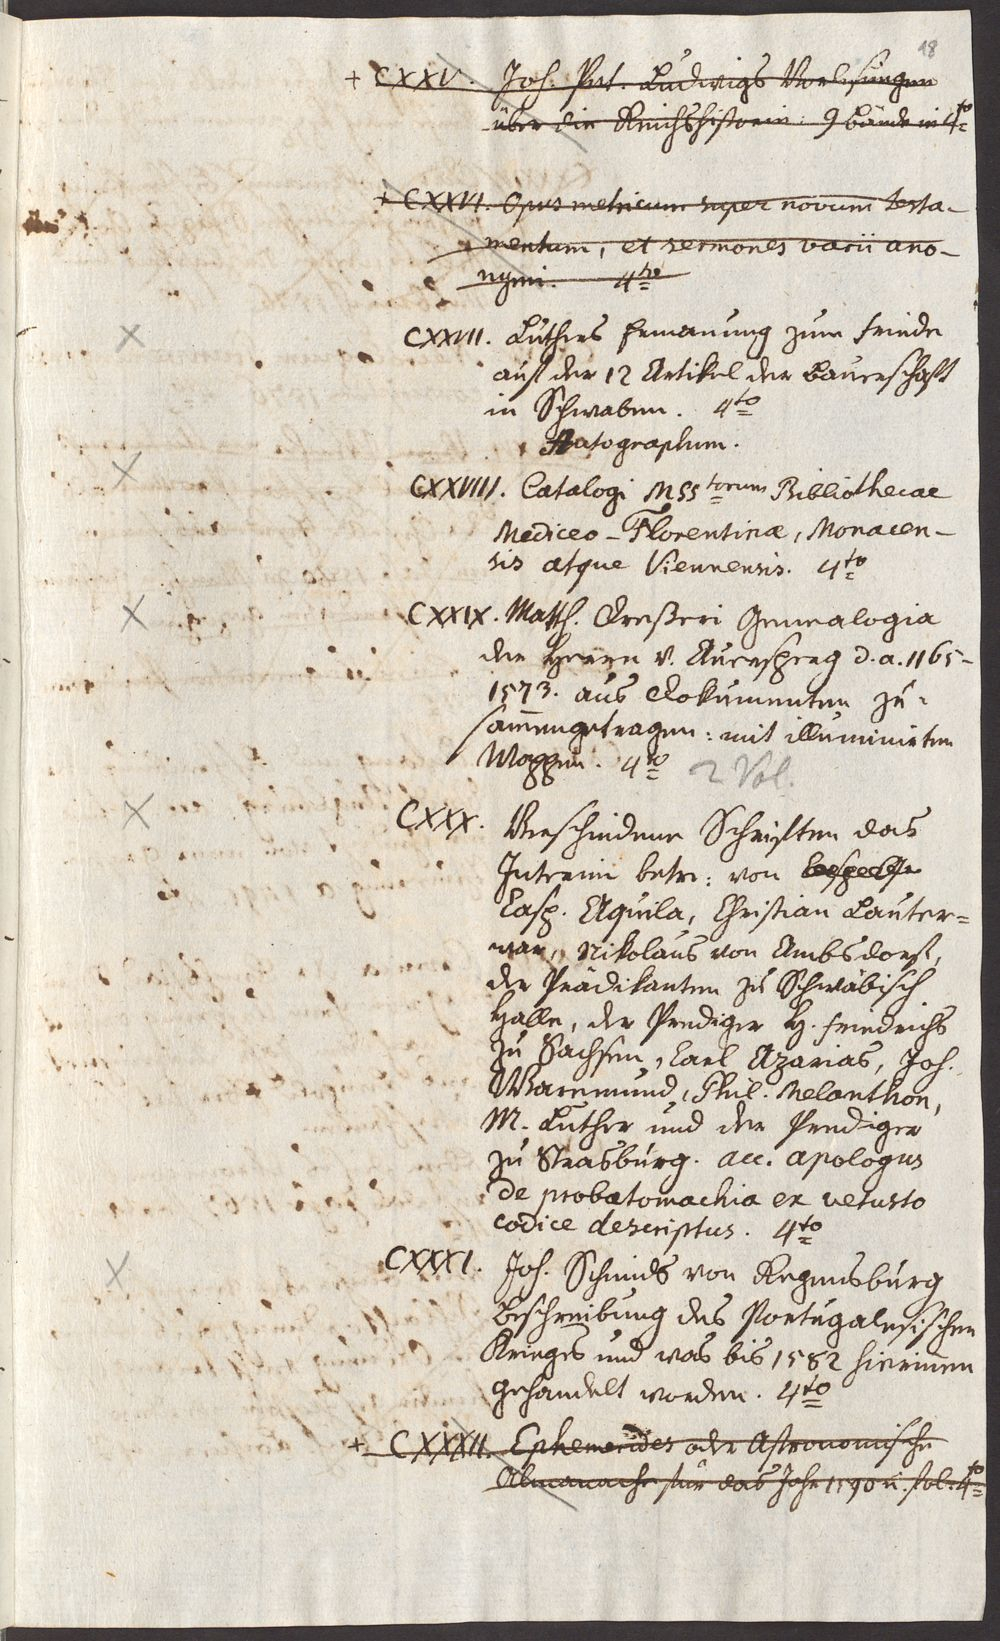 18
+ CXXV. Joh. Pet. Ludwigs Vorlesungen
über die Reichshistorie. 9 Bände in 4to
+ CXXVI. Opus metricum super novum testa-
mentum, et sermones varii ano-
nymi. 4to
CXXVII. Luthers Ermanung zum Friede
auf der 12 Artikel der Bauerschaft
in Schwaben. 4to
Autographum.
CXXVIII. Catalogi MSStorum Bibliothecae
Mediceo-Florentinae, Monacen-
sis atque Viennensis. 4to
CXXIX. Matth. Dreßeri Genealogia
der Herrn v. Auersperg d. a. 1165-
1573. aus Dokumenten zu-
sammengetragen: mit illuminirten
Wappen. 4to 2 Vol.
CXXX. Verschiedene Schriften das
Interim betr: von
Casp. Aquila, Christian Lauter-
war, Nikolaus von Ambsdorf,
der Prädikanten zu Schwäbisch
Halle, der Prediger H. Friedrichs
zu Sachsen, Carl Azarias, Joh.
Waremund, Phil. Melanthon,
M. Luther und der Prediger
zu Strasburg. acc. apologus
de probatomachia ex vetusto
codice descriptus. 4to
CXXXI. Joh. Schmids von Regensburg
Beschreibung des Portugalesischen
Krieges und was bis 1582 hierinnen
gehandelt worden. 4to
+ CXXXII. Ephemerides oder Astronomische
Almanache für das Jahr 1590 u. fol. 4to